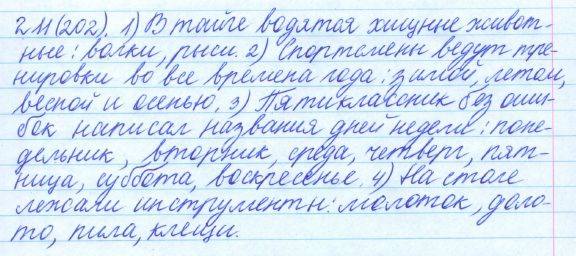 211(202). 1) В тайге водятся хищные живот-
ные: волки, рыси. 2) Спортсмены ведут тре-
нировки во все времена года: зимой, летом,
весной и осенью. 3) Пятиклассник без оши-
бок написал названия дней недели: поне-
дельник, вторник, среда, четверг, пят-
ница, суббота, воскресенье. 4) На столе
лежали инструменты: молоток, доло-
то, пила, клещи.